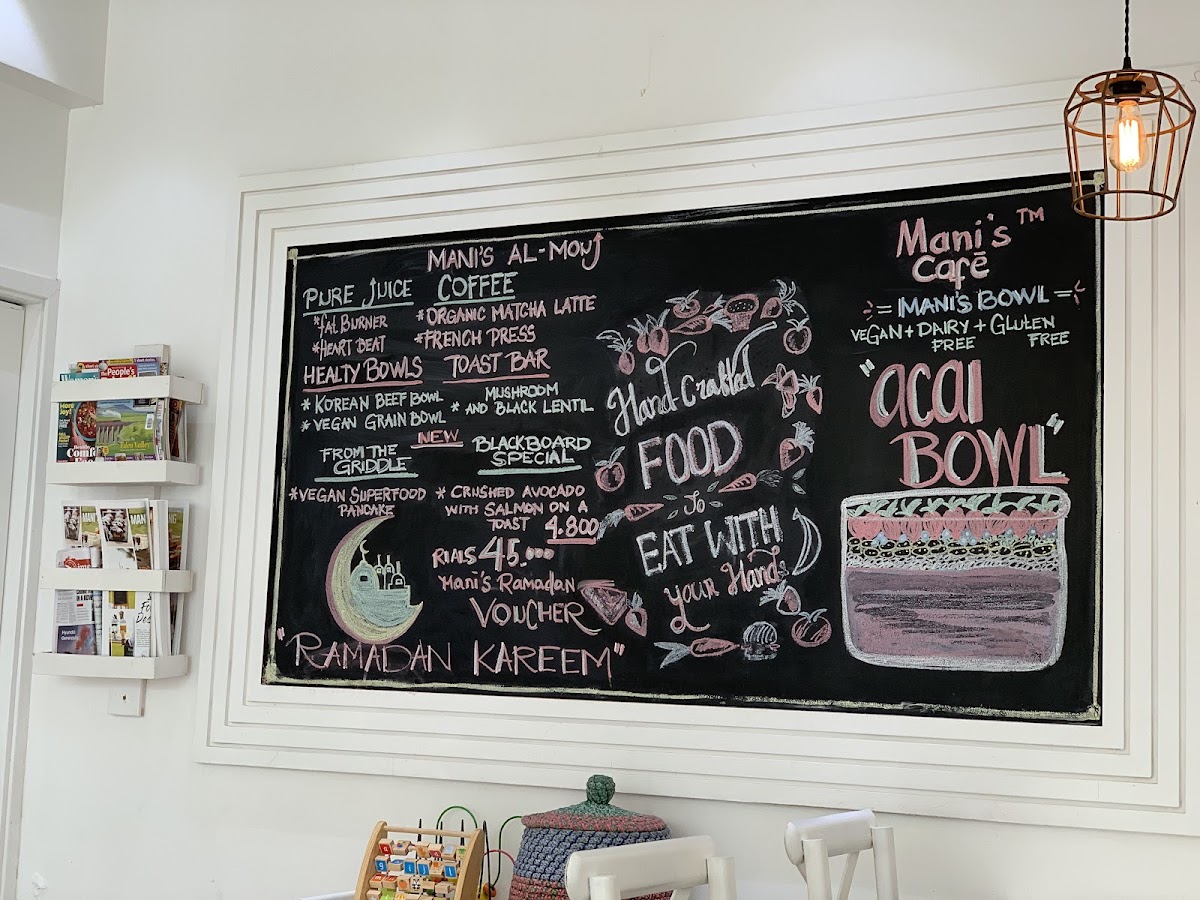 MANI'S AL-MOUJ
PURE JUICE
*FAT BURNER
*HEART BEAT
COFFEE
*ORGANIC MATCHA LATTE
*FRENCH PRESS
HEALTY BOWLS
* KOREAN BEEF BOWL
* VEGAN GRAIN BOWL
TOAST BAR
* MUSHROOM
AND BLACK LENTIL
NEW
FROM THE
GRIDDLE
*VEGAN SUPERFOOD
PANCAKE
BLACKBOARD
SPECIAL
* CRUSHED AVOCADO
WITH SALMON ON A
TOAST 4.800
RIALS 45.000
Mani's Ramadan
VOUCHER
"RAMADAN KAREEM"
Hand Crafted
FOOD
To
EAT WITH
your Hands
Mani's™
Café
=MANI'S BOWL=
VEGAN + DAIRY + GLUTEN
FREE FREE
"ACAI
BOWL"
The People's